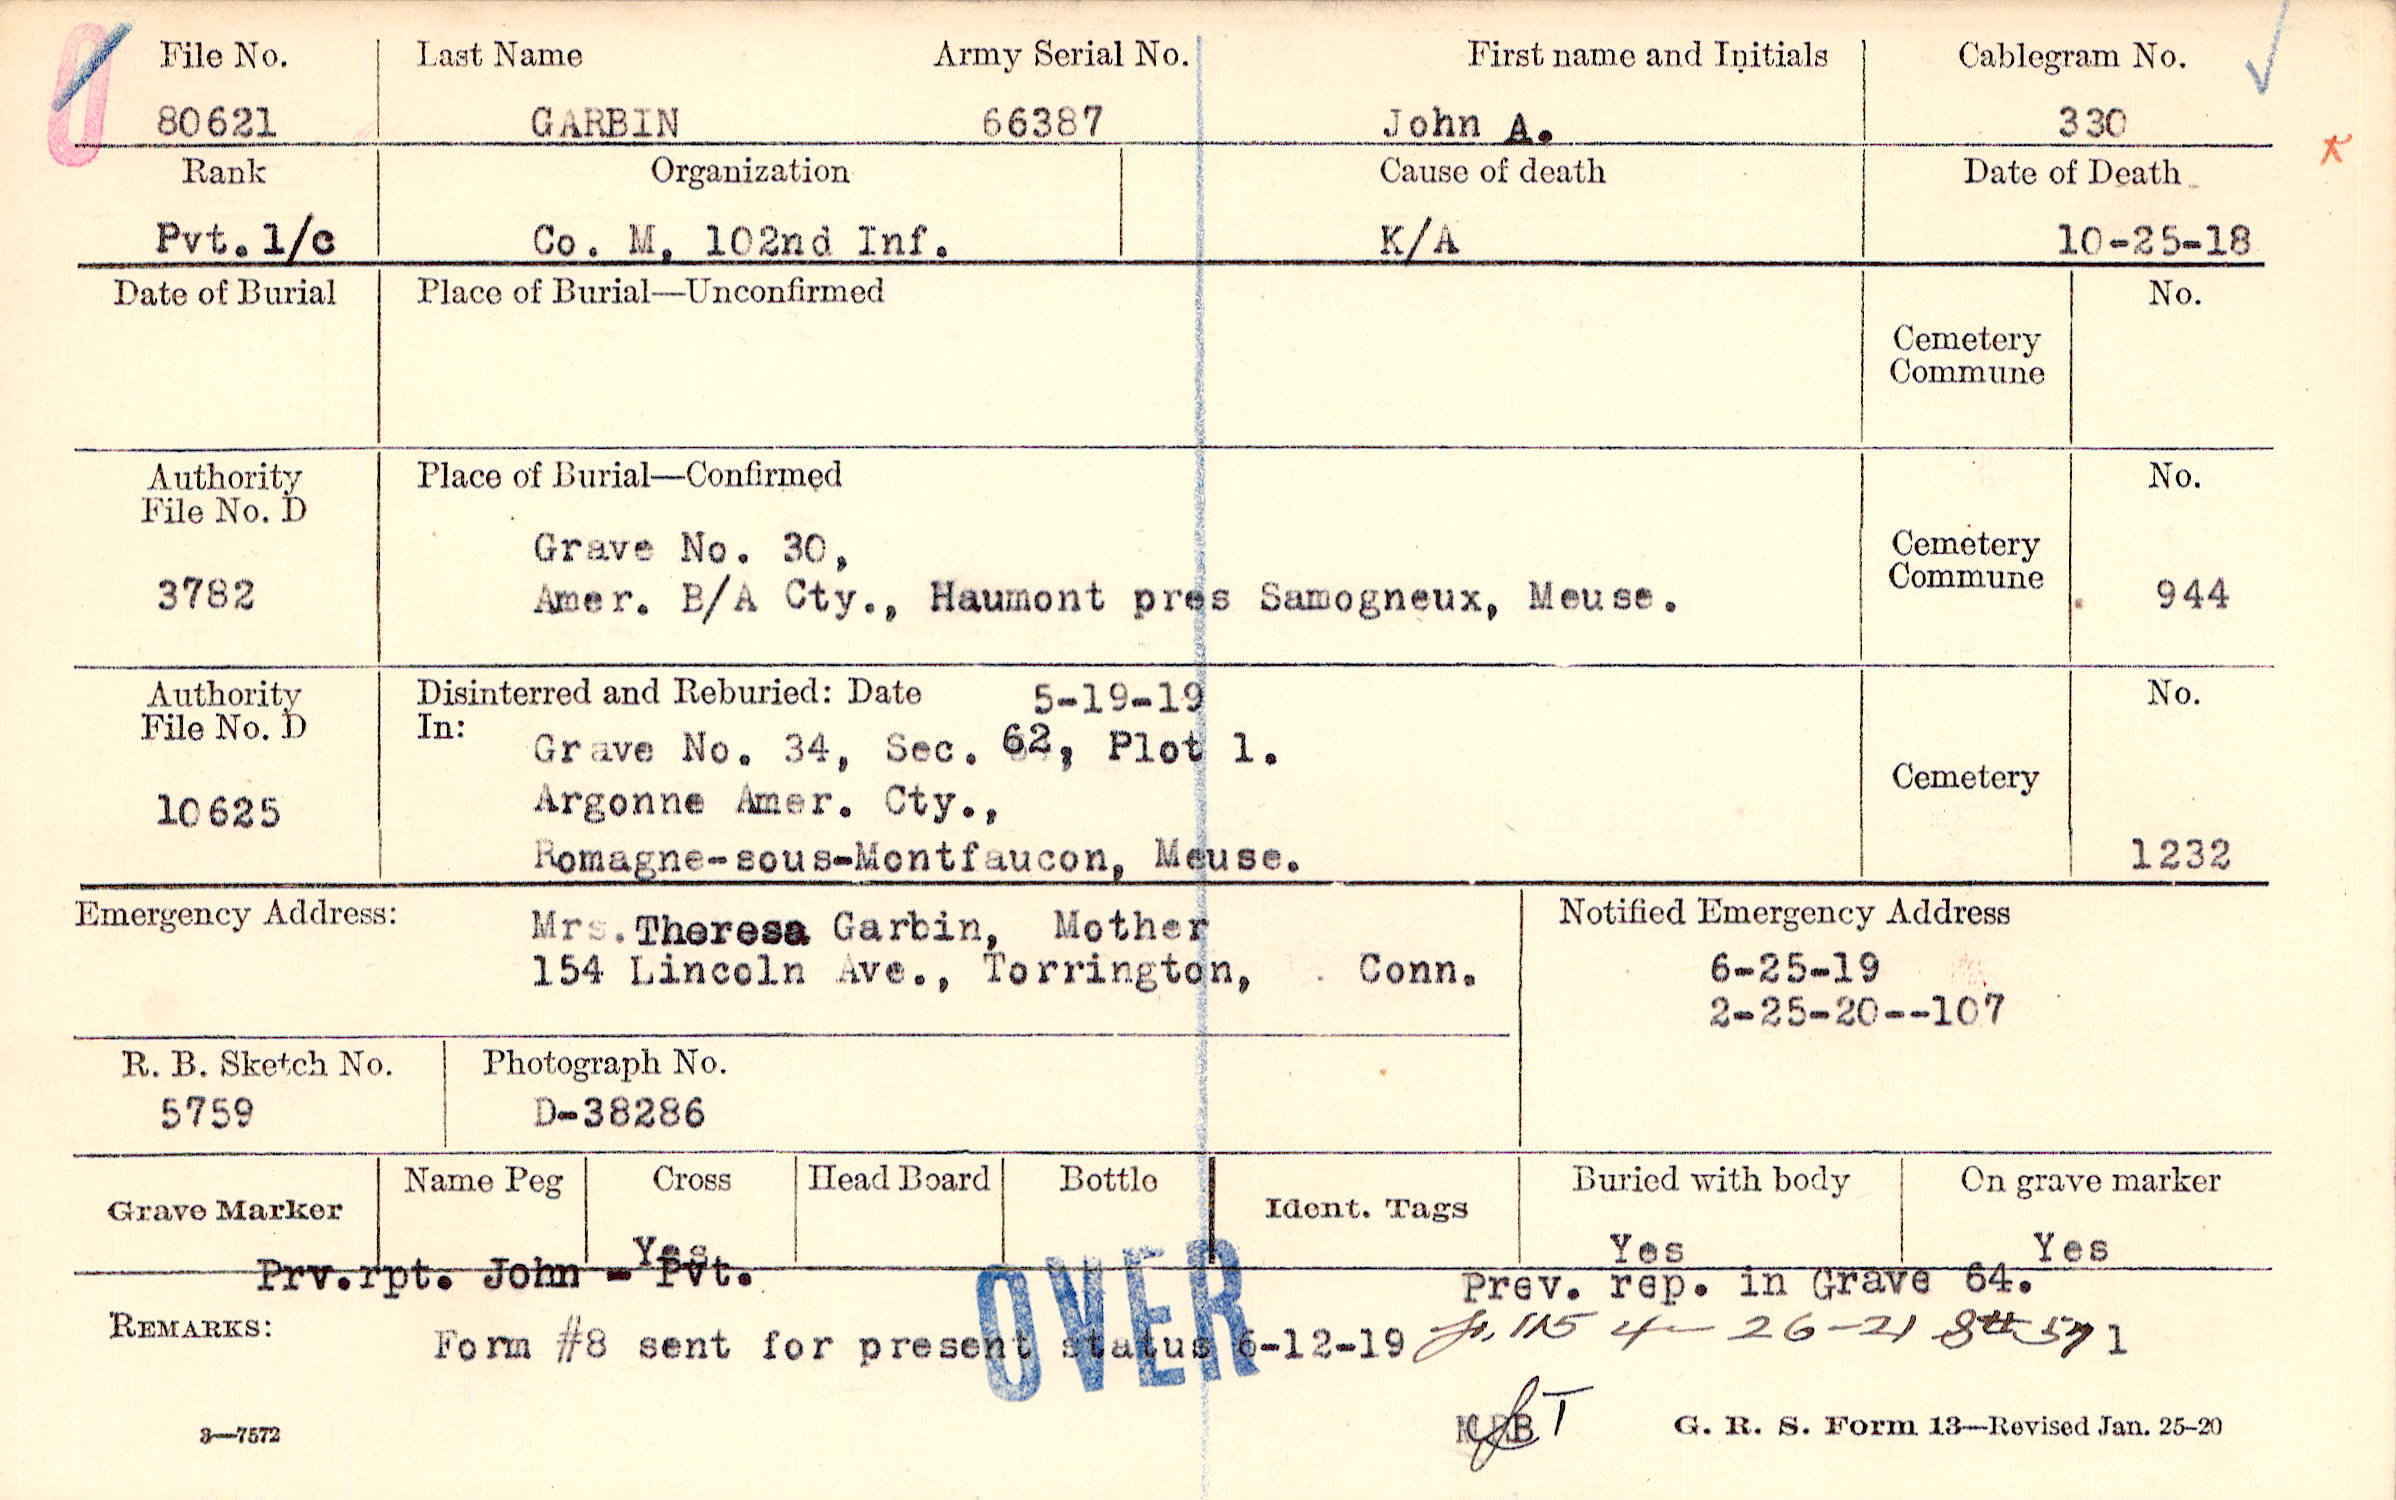 File No. Last Name Army Serial No. First name and Initials Cablegram No.
80621 GARBIN 66387 John A. 330
Rank Organization Cause of death Date of Death
Pvt. 1/c Co. M, 102nd Inf. K/A 10-25-18
Date of Burial Place of Burial—Unconfirmed No.
Cemetery
Commune
Authority Place of Burial—Confirmed No.
File No. D
Grave No. 30,
Cemetery
Commune
3782 Amer. B/A Cty., Haumont pres Samogneux, Meuse. 944
Authority Disinterred and Reburied: Date 5-19-19 No.
File No. D In:
Grave No. 34, Sec. 62, Plot 1.
Cemetery
10625 Argonne Amer. Cty.,
Romagne-sous-Montfaucon, Meuse. 1232
Emergency Address: Mrs. Theresa Garbin, Mother Notified Emergency Address
154 Lincoln Ave., Torrington, Conn. 6-25-19
2-25-20--107
R. B. Sketch No. Photograph No.
5759 D-38286
Grave Marker Name Peg Cross Head Board Bottle Ident. Tags Buried with body On grave marker
Yes Yes Yes
Prv.rpt. John - Pvt. Prev. rep. in Grave 64.
REMARKS: Form #8 sent for present status 6-12-19 4-26-21 1
OVER
3—7572 G. R. S. Form 13—Revised Jan. 25-20